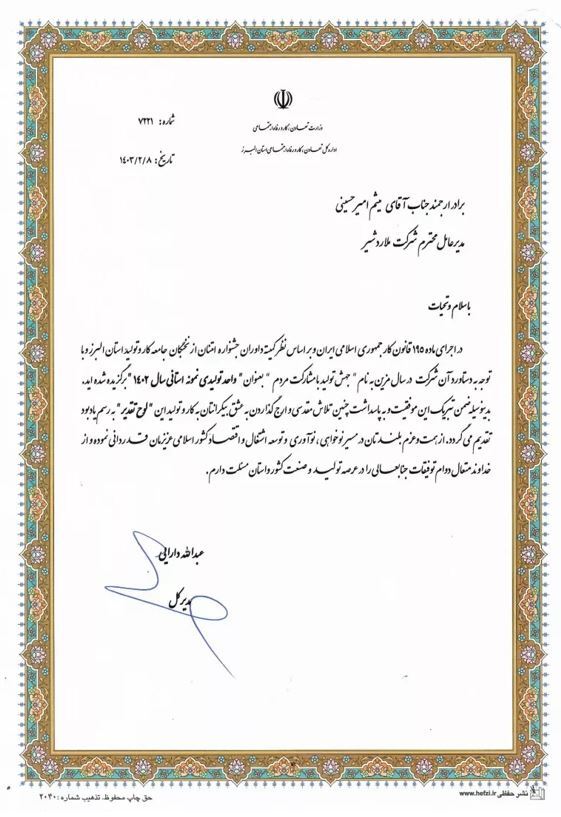 شماره: ۷۲۲۱
وزارت تعاون، کار و رفاه اجتماعی
اداره کل تعاون، کار و رفاه اجتماعی استان البرز
تاریخ: ۱۴۰۳/۲/۸
برادر ارجمند جناب آقای میثم امیرحسینی
مدیرعامل محترم شرکت ملارد شیر
با سلام و تحیات
در اجرای ماده ۱۹۵ قانون کار جمهوری اسلامی ایران و بر اساس نظر کمیته داوران جشنواره امتنان از نخبگان جامعه کار و تولید استان البرز و با
توجه به دستاورد آن شرکت در سال مزین به نام "جهش تولید با مشارکت مردم" بعنوان "واحد تولیدی نمونه استانی سال ۱۴۰۲" برگزیده شده اید.
بدینوسیله ضمن تبریک این موفقیت و به پاسداشت چنین تلاش مقدسی و ارج گذاردن به عشق بیکرانتان به کار و تولید این "لوح تقدیر" به رسم یادبود
تقدیم می گردد. از همت و عزم بلندتان در مسیر نوخواهی، نوآوری و توسعه اشتغال و اقتصاد کشور اسلامی عزیزمان قدردانی نموده و از
خداوند متعال دوام توفیقات جنابعالی را در عرصه تولید و صنعت کشور و استان مسئلت دارم.
عبدالله دارایی
مدیرکل
نشر حفظی www.hefzi.ir
حق چاپ محفوظ. تذهیب شماره: ۲۰۴۰